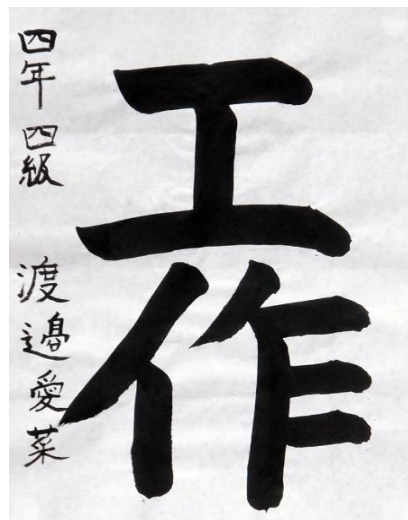 工作
四年 四級 渡邉愛菜